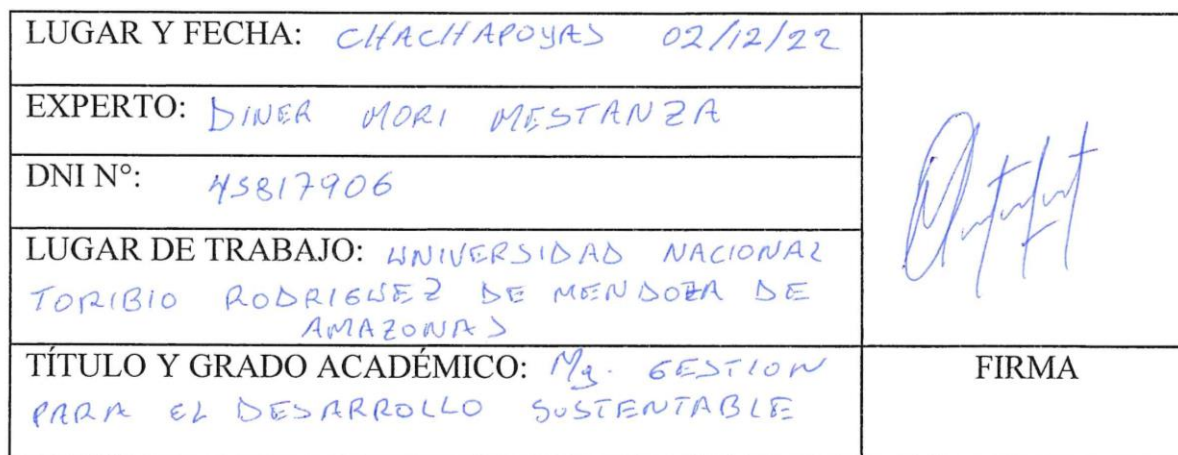 LUGAR Y FECHA: CHACHAPOYAS 02/12/22
EXPERTO: DINER MORI MESTANZA
DNI N°: 45817906
LUGAR DE TRABAJO: UNIVERSIDAD NACIONAL
TORIBIO RODRIGUEZ DE MENDOZA DE
AMAZONAS
TÍTULO Y GRADO ACADÉMICO: Mg. GESTION
PARA EL DESARROLLO SUSTENTABLE
FIRMA